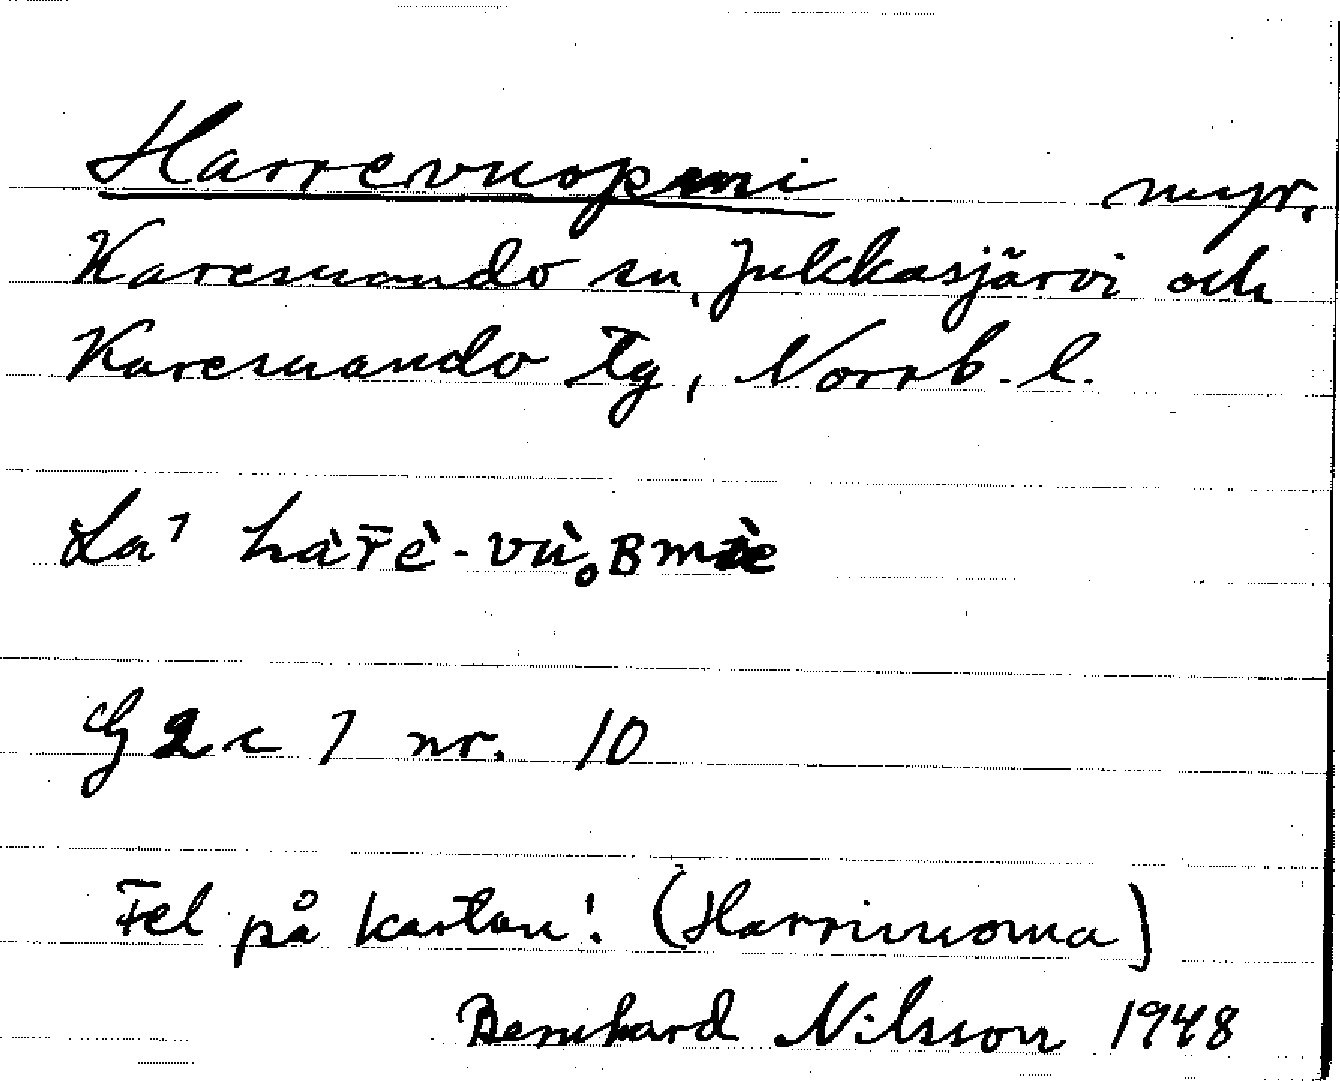 Harrevuopmi myr.
Karesuando sn, Jukkasjärvi och
Karesuando tg, Norrb. l.
La⁷ hàr̄è-vù̥ʙmè
G 2 c 7 nr. 10
Fel på kartan! (Harrivuoma)
Bernhard Nilsson 1948